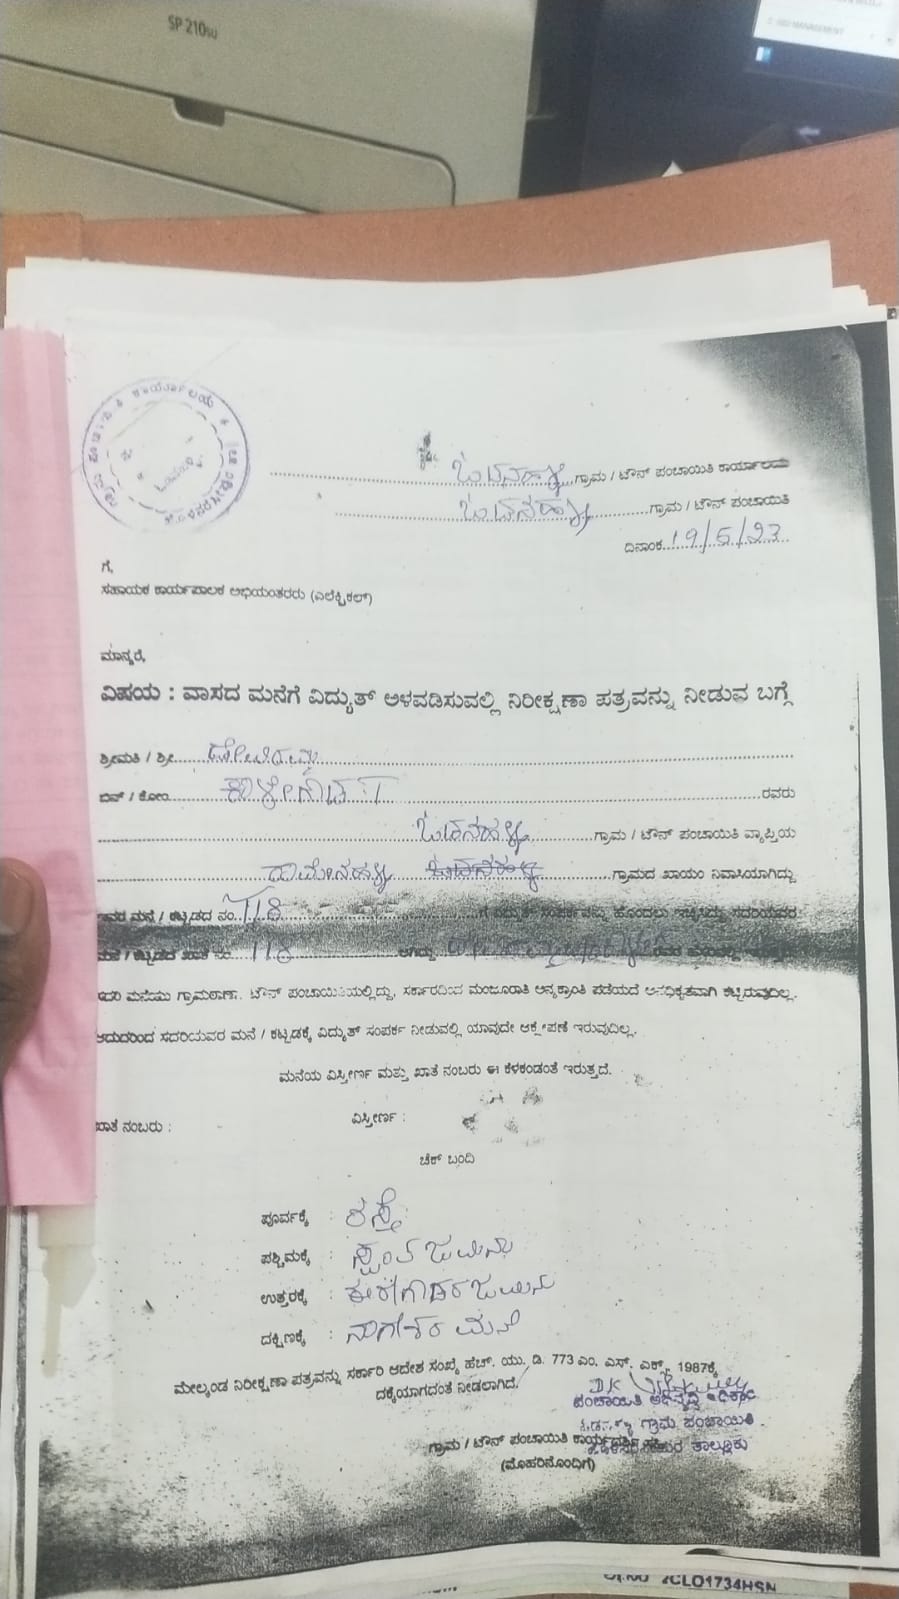 SP 210SU
ಒಡನಹಳ್ಳಿ ಗ್ರಾಮ / ಟೌನ್ ಪಂಚಾಯಿತಿ ಕಾರ್ಯಾಲಯ
ಒಡನಹಳ್ಳಿ ಗ್ರಾಮ / ಟೌನ್ ಪಂಚಾಯಿತಿ
ದಿನಾಂಕ 19/5/23
ಗೆ,
ಸಹಾಯಕ ಕಾರ್ಯಪಾಲಕ ಅಭಿಯಂತರರು (ಎಲೆಕ್ಟ್ರಿಕಲ್)
ಮಾನ್ಯರೆ,
ವಿಷಯ : ವಾಸದ ಮನೆಗೆ ವಿದ್ಯುತ್ ಅಳವಡಿಸುವಲ್ಲಿ ನಿರೀಕ್ಷಣಾ ಪತ್ರವನ್ನು ನೀಡುವ ಬಗ್ಗೆ
ಶ್ರೀಮತಿ / ಶ್ರೀ
ಬಿನ್ / ಕೋಂ ಕಾಳೇಗೌಡ ರವರು
ಒಡನಹಳ್ಳಿ ಗ್ರಾಮ / ಟೌನ್ ಪಂಚಾಯಿತಿ ವ್ಯಾಪ್ತಿಯ
ರಾಮೇನಹಳ್ಳಿ ಗ್ರಾಮದ ಖಾಯಂ ನಿವಾಸಿಯಾಗಿದ್ದು
ಇವರ ಮನೆ / ಕಟ್ಟಡದ ನಂ. 118 ಗೆ ವಿದ್ಯುತ್ ಸಂಪರ್ಕವನ್ನು ಹೊಂದಲು ಇಚ್ಛಿಸಿದ್ದು ಸದರಿಯವರ
ಮನೆ / ಕಟ್ಟಡದ ಖಾತೆ ನಂ 118 ಆಗಿದ್ದು
ಇದರ ಮನೆಯು ಗ್ರಾಮಠಾಣಾ, ಟೌನ್ ಪಂಚಾಯಿತಿಯಲ್ಲಿದ್ದು, ಸರ್ಕಾರದಿಂದ ಮಂಜೂರಾತಿ ಅನ್ಯಕ್ರಾಂತಿ ಪಡೆಯದೆ ಅನಧಿಕೃತವಾಗಿ ಕಟ್ಟಿರುವುದಿಲ್ಲ.
ಆದುದರಿಂದ ಸದರಿಯವರ ಮನೆ / ಕಟ್ಟಡಕ್ಕೆ ವಿದ್ಯುತ್ ಸಂಪರ್ಕ ನೀಡುವಲ್ಲಿ ಯಾವುದೇ ಆಕ್ಷೇಪಣೆ ಇರುವುದಿಲ್ಲ.
ಮನೆಯ ವಿಸ್ತೀರ್ಣ ಮತ್ತು ಖಾತೆ ನಂಬರು ಈ ಕೆಳಕಂಡಂತೆ ಇರುತ್ತದೆ.
ಖಾತೆ ನಂಬರು : ವಿಸ್ತೀರ್ಣ :
ಚೆಕ್ ಬಂದಿ
ಪೂರ್ವಕ್ಕೆ : ರಸ್ತೆ
ಪಶ್ಚಿಮಕ್ಕೆ : ಸ್ವಂತ ಜಮೀನು
ಉತ್ತರಕ್ಕೆ : ಈರೇಗೌಡರ ಜಮೀನು
ದಕ್ಷಿಣಕ್ಕೆ : ನಾಗೇಶರ ಮನೆ
ಮೇಲ್ಕಂಡ ನಿರೀಕ್ಷಣಾ ಪತ್ರವನ್ನು ಸರ್ಕಾರಿ ಆದೇಶ ಸಂಖ್ಯೆ ಹೆಚ್. ಯು. ಡಿ. 773 ಎಂ. ಎಸ್. ಎಕ್ಸ್. 1987ಕ್ಕೆ
ದಕ್ಕೆಯಾಗದಂತೆ ನೀಡಲಾಗಿದೆ.
ಪಂಚಾಯಿತಿ ಅಭಿವೃದ್ಧಿ ಅಧಿಕಾರಿ
ಗ್ರಾಮ ಪಂಚಾಯಿತಿ
ಗ್ರಾಮ / ಟೌನ್ ಪಂಚಾಯಿತಿ ಕಾರ್ಯದರ್ಶಿ
ತಾಲ್ಲೂಕು
(ಮೊಹರಿನೊಂದಿಗೆ)
CLO1734HSN